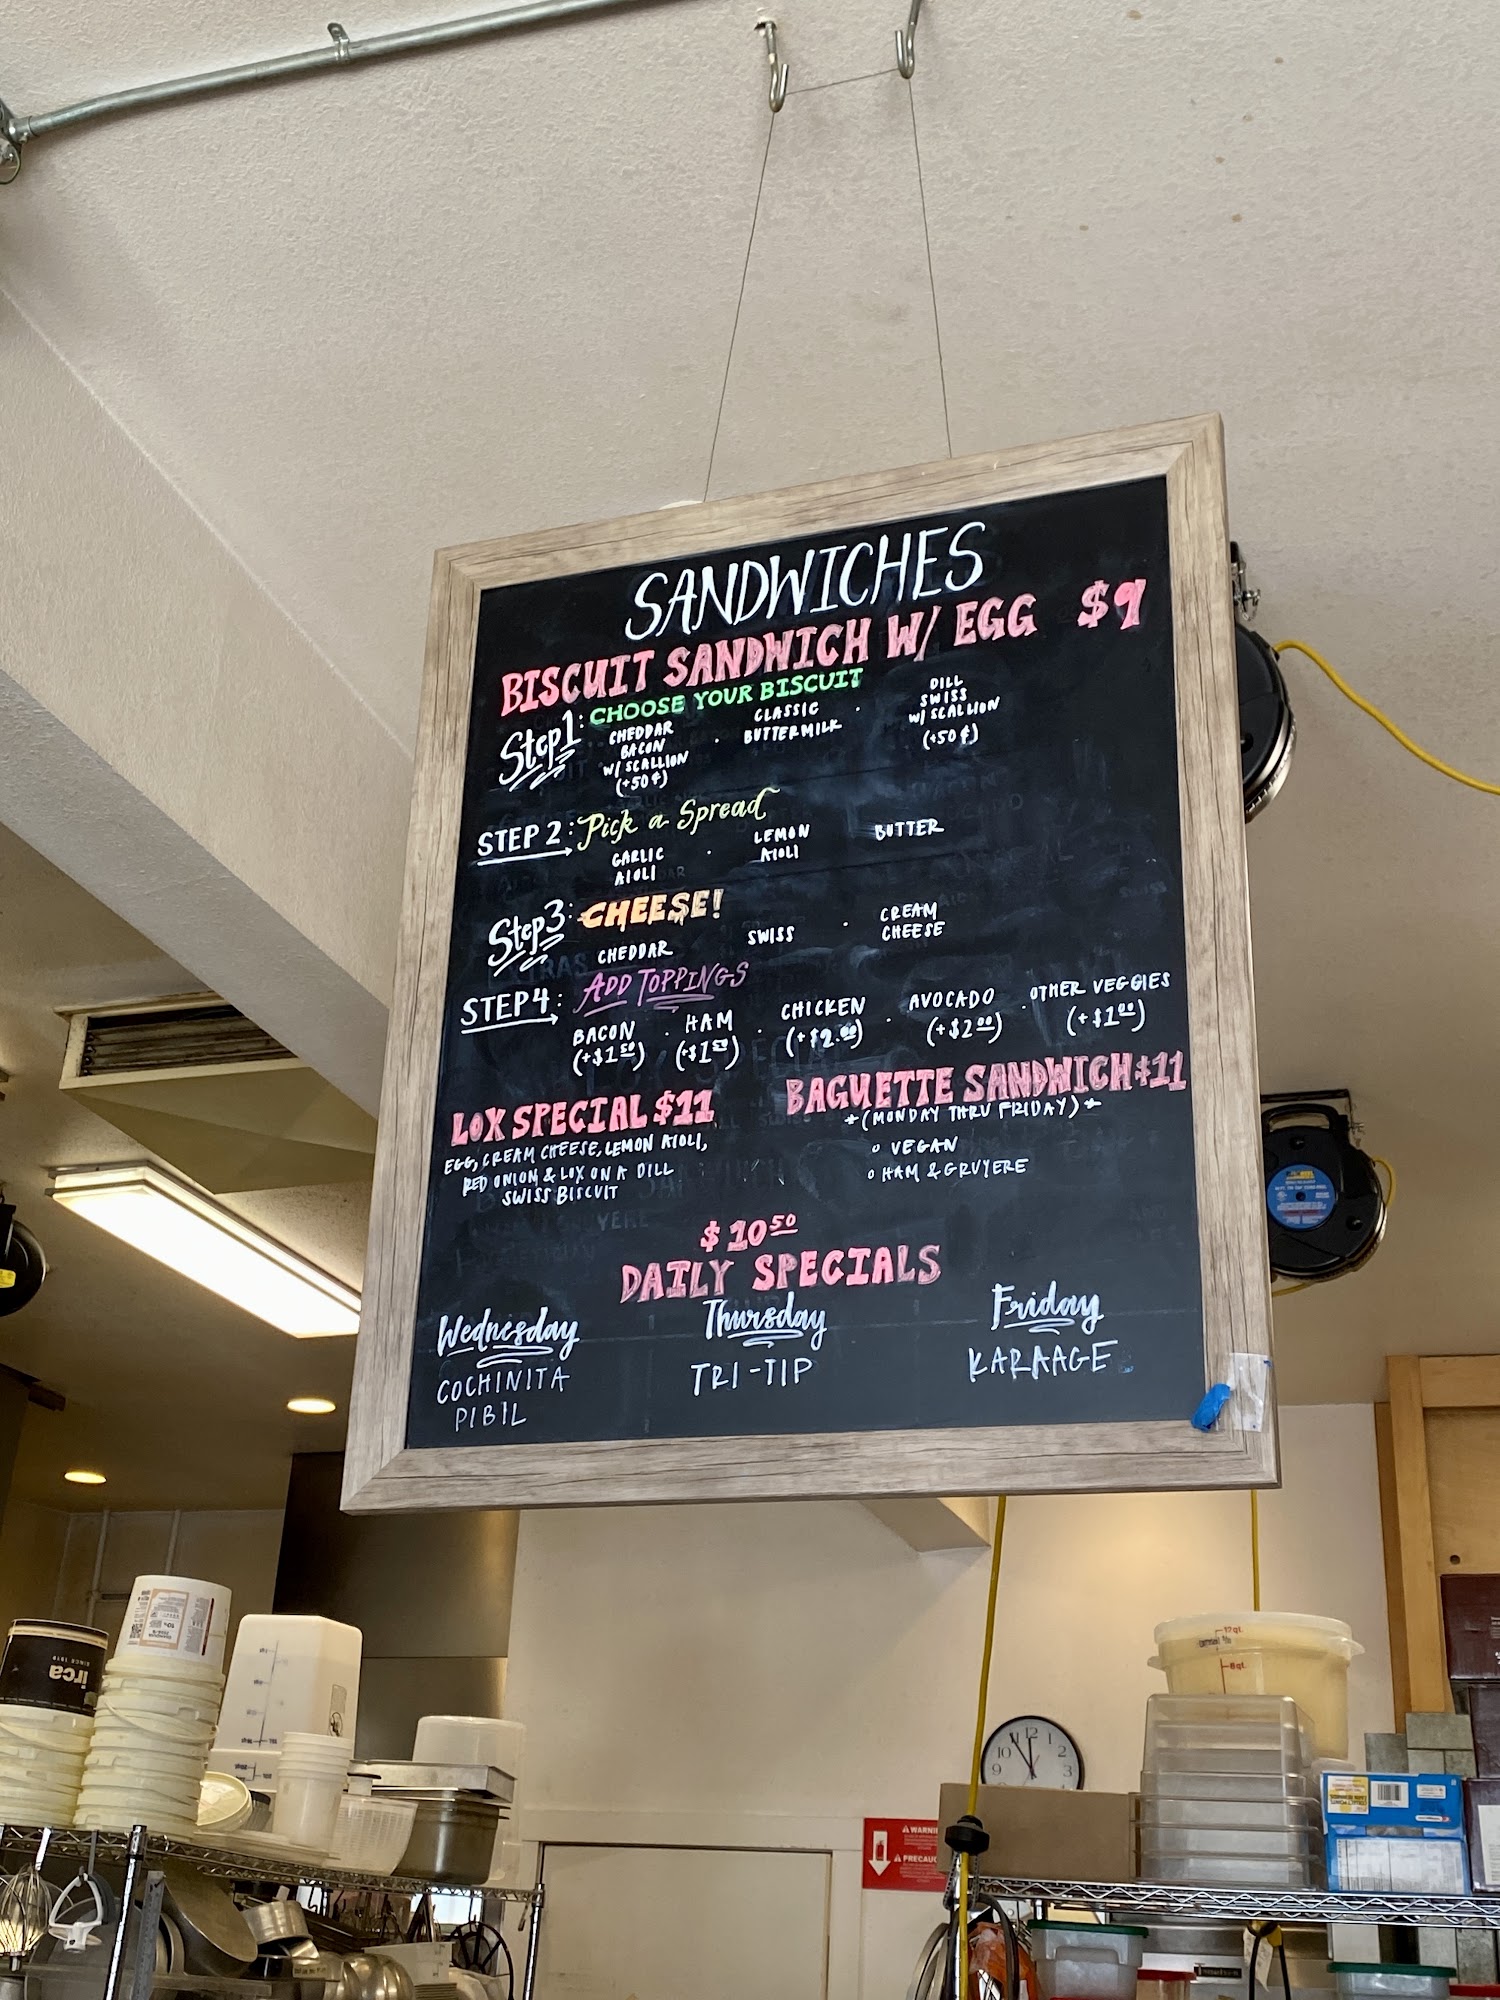 SANDWICHES
BISCUIT SANDWICH W/ EGG $9
Step 1: CHOOSE YOUR BISCUIT
CHEDDAR
BACON
W/ SCALLION
(+50¢)
CLASSIC
BUTTERMILK
DILL
SWISS
W/ SCALLION
(+50¢)
STEP 2: Pick a Spread
GARLIC
AIOLI
LEMON
AIOLI
BUTTER
Step 3: CHEESE!
CHEDDAR
SWISS
CREAM
CHEESE
STEP 4: ADD TOPPINGS
BACON
(+$1.50)
HAM
(+$1.50)
CHICKEN
(+$2.00)
AVOCADO
(+$2.00)
OTHER VEGGIES
(+$1.00)
LOX SPECIAL $11
EGG, CREAM CHEESE, LEMON AIOLI,
RED ONION & LOX ON A DILL
SWISS BISCUIT
BAGUETTE SANDWICH $11
*(MONDAY THRU FRIDAY)*
VEGAN
HAM & GRUYERE
$10.50
DAILY SPECIALS
Wednesday
COCHINITA
PIBIL
Thursday
TRI-TIP
Friday
KARAAGE
irca
SINCE 1919
17qt.
8qt.
11 12
10 2
9 3
WARNI
PRECAUC